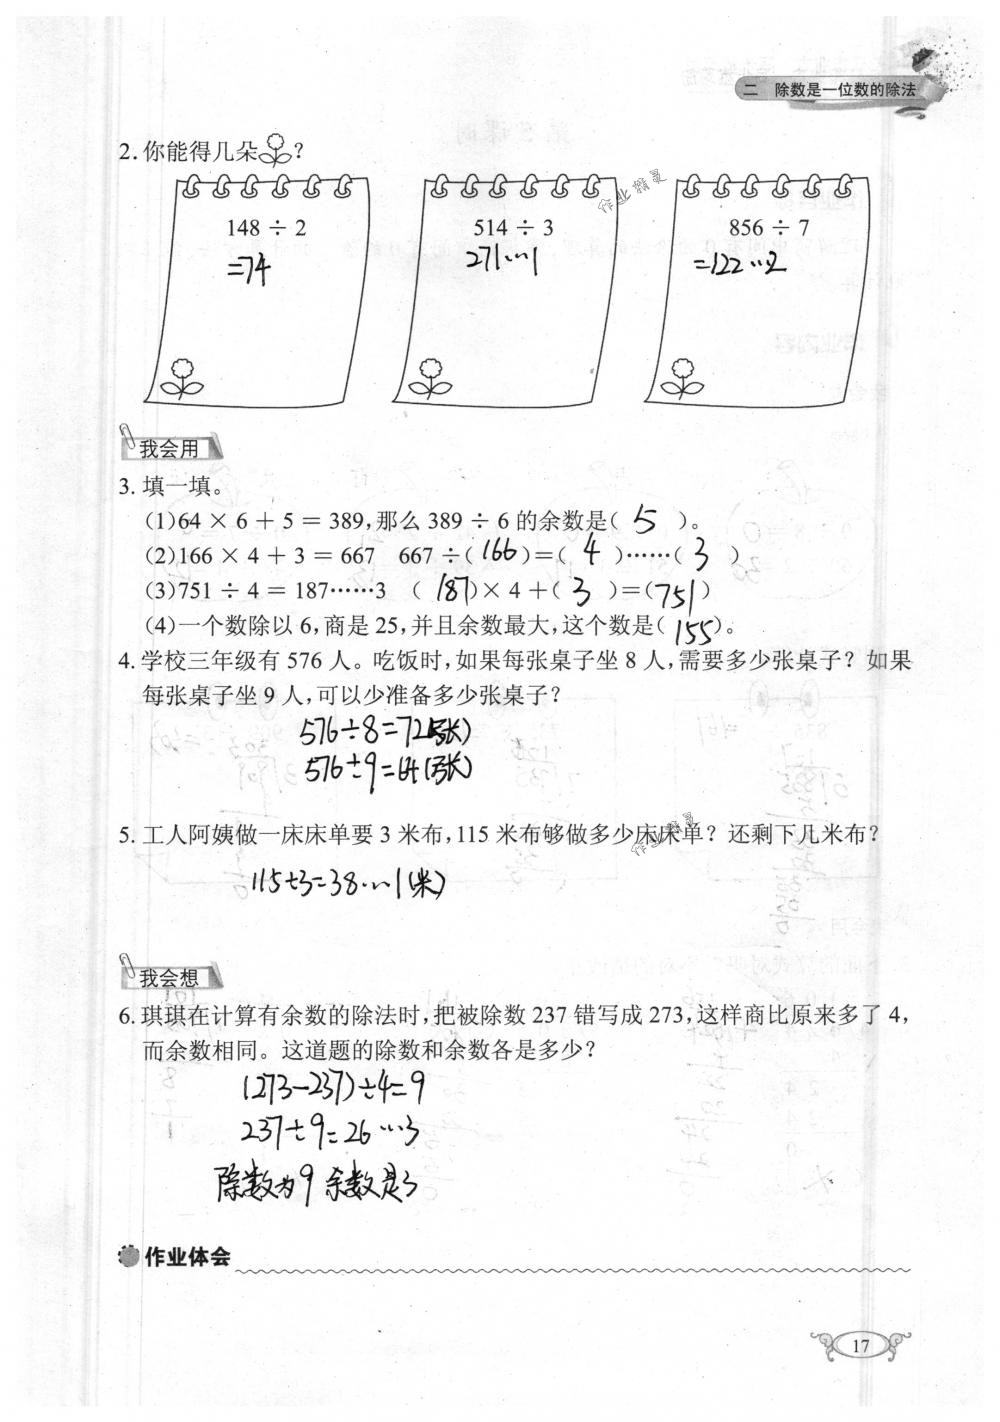 二 除数是一位数的除法
2.你能得几朵?
148 ÷ 2
=74
514 ÷ 3
271……1
856 ÷ 7
=122……2
作业精灵
我会用
3.填一填。
(1)64 × 6 + 5 = 389,那么 389 ÷ 6 的余数是( 5 )。
(2)166 × 4 + 3 = 667 667 ÷( 166 )=( 4 )……( 3 )
(3)751 ÷ 4 = 187……3 ( 187 )× 4 +( 3 )=( 751 )
(4)一个数除以 6,商是 25,并且余数最大,这个数是( 155 )。
4.学校三年级有 576 人。吃饭时,如果每张桌子坐 8 人,需要多少张桌子? 如果
每张桌子坐 9 人,可以少准备多少张桌子?
576÷8=72(张)
576÷9=64(张)
5.工人阿姨做一床床单要 3 米布,115 米布够做多少床床单? 还剩下几米布?
作业精灵
115÷3=38……1(米)
我会想
6.琪琪在计算有余数的除法时,把被除数 237 错写成 273,这样商比原来多了 4,
而余数相同。这道题的除数和余数各是多少?
(273-237)÷4=9
237÷9=26……3
除数为9 余数是3
作业体会
17